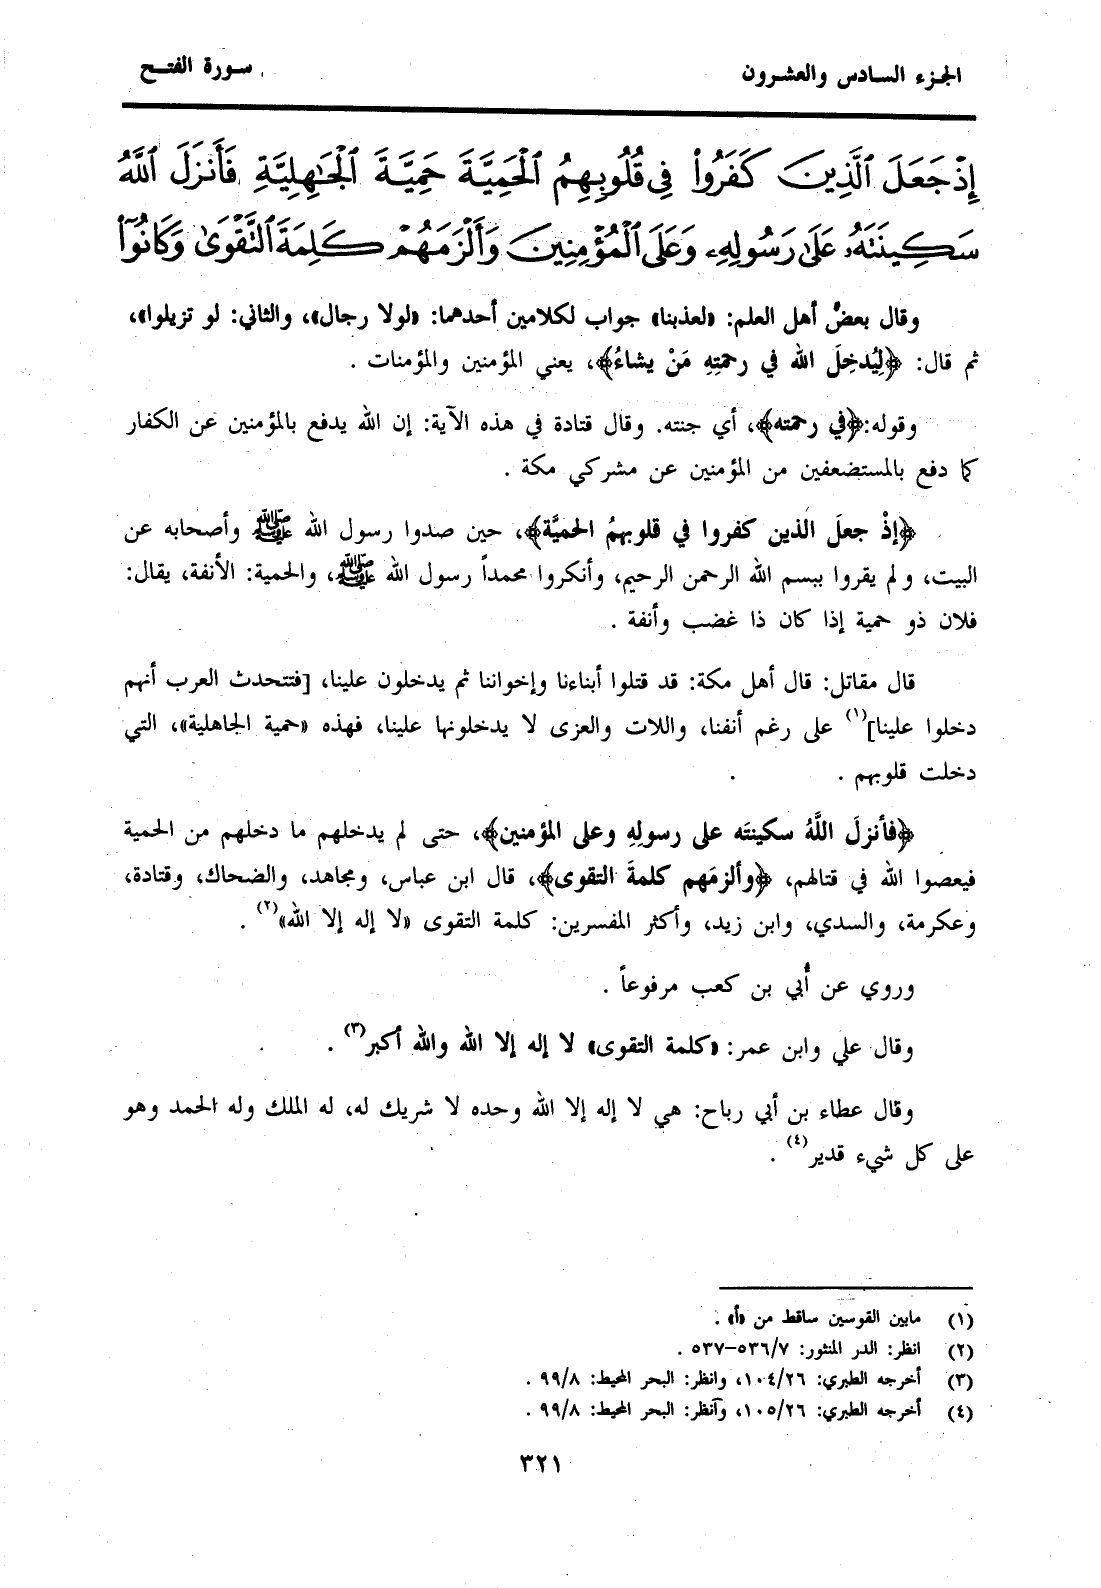 الجزء السادس والعشرون
سورة الفتح
إِذْ جَعَلَ ٱلَّذِينَ كَفَرُوا۟ فِى قُلُوبِهِمُ ٱلْحَمِيَّةَ حَمِيَّةَ ٱلْجَٰهِلِيَّةِ فَأَنزَلَ ٱللَّهُ
سَكِينَتَهُۥ عَلَىٰ رَسُولِهِۦ وَعَلَى ٱلْمُؤْمِنِينَ وَأَلْزَمَهُمْ كَلِمَةَ ٱلتَّقْوَىٰ وَكَانُوٓا۟
وقال بعضُ أهل العلم: «لعذبنا» جواب لكلامين أحدهما: «لولا رجال»، والثاني: لو تزيلوا»،
ثم قال: ﴿لِيُدخِلَ الله في رحمتِهِ مَنْ يشاءُ﴾، يعني المؤمنين والمؤمنات .
وقوله:﴿في رحمته﴾، أي جنته. وقال قتادة في هذه الآية: إن الله يدفع بالمؤمنين عن الكفار
كما دفع بالمستضعفين من المؤمنين عن مشركي مكة .
﴿إذْ جعلَ الذين كفروا في قلوبهمُ الحميَّة﴾، حين صدوا رسول الله ﷺ وأصحابه عن
البيت، ولم يقروا ببسم الله الرحمن الرحيم، وأنكروا محمداً رسول الله ﷺ، والحمية: الأنفة، يقال:
فلان ذو حمية إذا كان ذا غضب وأنفة .
قال مقاتل: قال أهل مكة: قد قتلوا أبناءنا وإخواننا ثم يدخلون علينا، [فتتحدث العرب أنهم
دخلوا علينا](١) على رغم أنفنا، واللات والعزى لا يدخلونها علينا، فهذه «حمية الجاهلية»، التي
دخلت قلوبهم .
﴿فأنزلَ اللَّهُ سكينتَه على رسولِهِ وعلى المؤمنين﴾، حتى لم يدخلهم ما دخلهم من الحمية
فيعصوا الله في قتالهم، ﴿وألزمَهم كلمةَ التقوى﴾، قال ابن عباس، ومجاهد، والضحاك، وقتادة،
وعكرمة، والسدي، وابن زيد، وأكثر المفسرين: كلمة التقوى «لا إله إلا الله»(٢) .
وروي عن أُبي بن كعب مرفوعاً .
وقال علي وابن عمر: «كلمة التقوى» لا إله إلا الله والله أكبر(٣) .
وقال عطاء بن أبي رباح: هي لا إله إلا الله وحده لا شريك له، له الملك وله الحمد وهو
على كل شيء قدير(٤) .
(١) مابين القوسين ساقط من «أ» .
(٢) انظر: الدر المنثور: ٥٣٦/٧–٥٣٧ .
(٣) أخرجه الطبري: ١٠٤/٢٦، وانظر: البحر المحيط: ٩٩/٨ .
(٤) أخرجه الطبري: ١٠٥/٢٦، وآنظر: البحر المحيط: ٩٩/٨ .
٣٢١